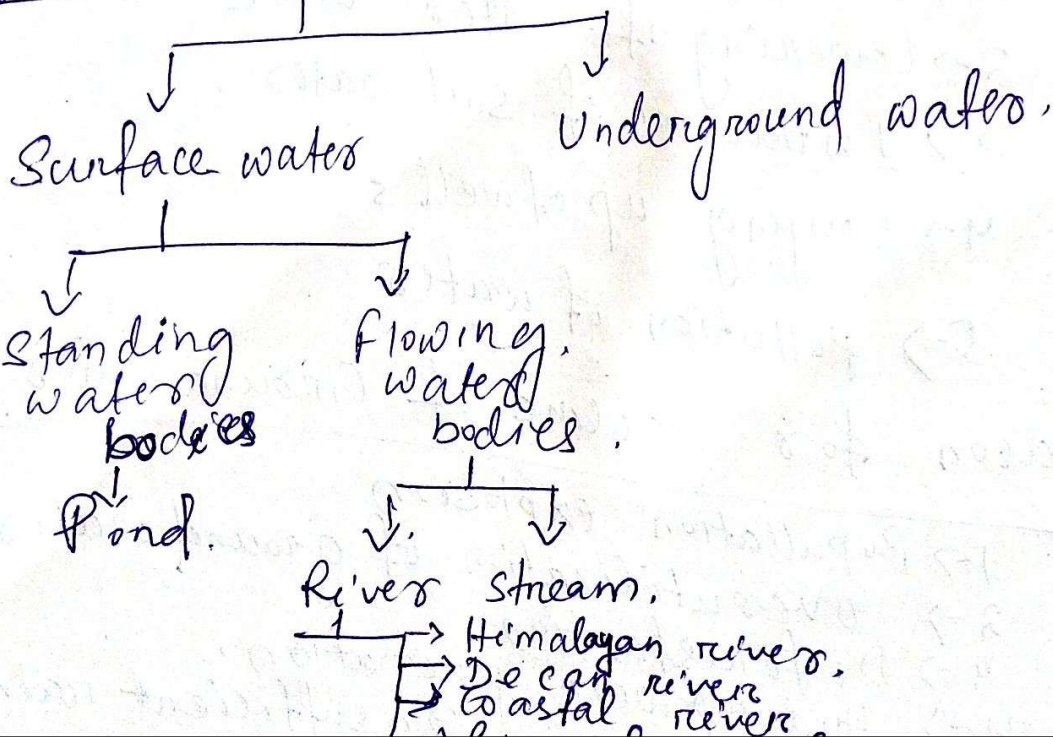 Surface water
Underground water.
Standing
water
bodies
Flowing.
water
bodies.
Pond.
River
stream.
Himalayan river.
Decan river
Coastal river